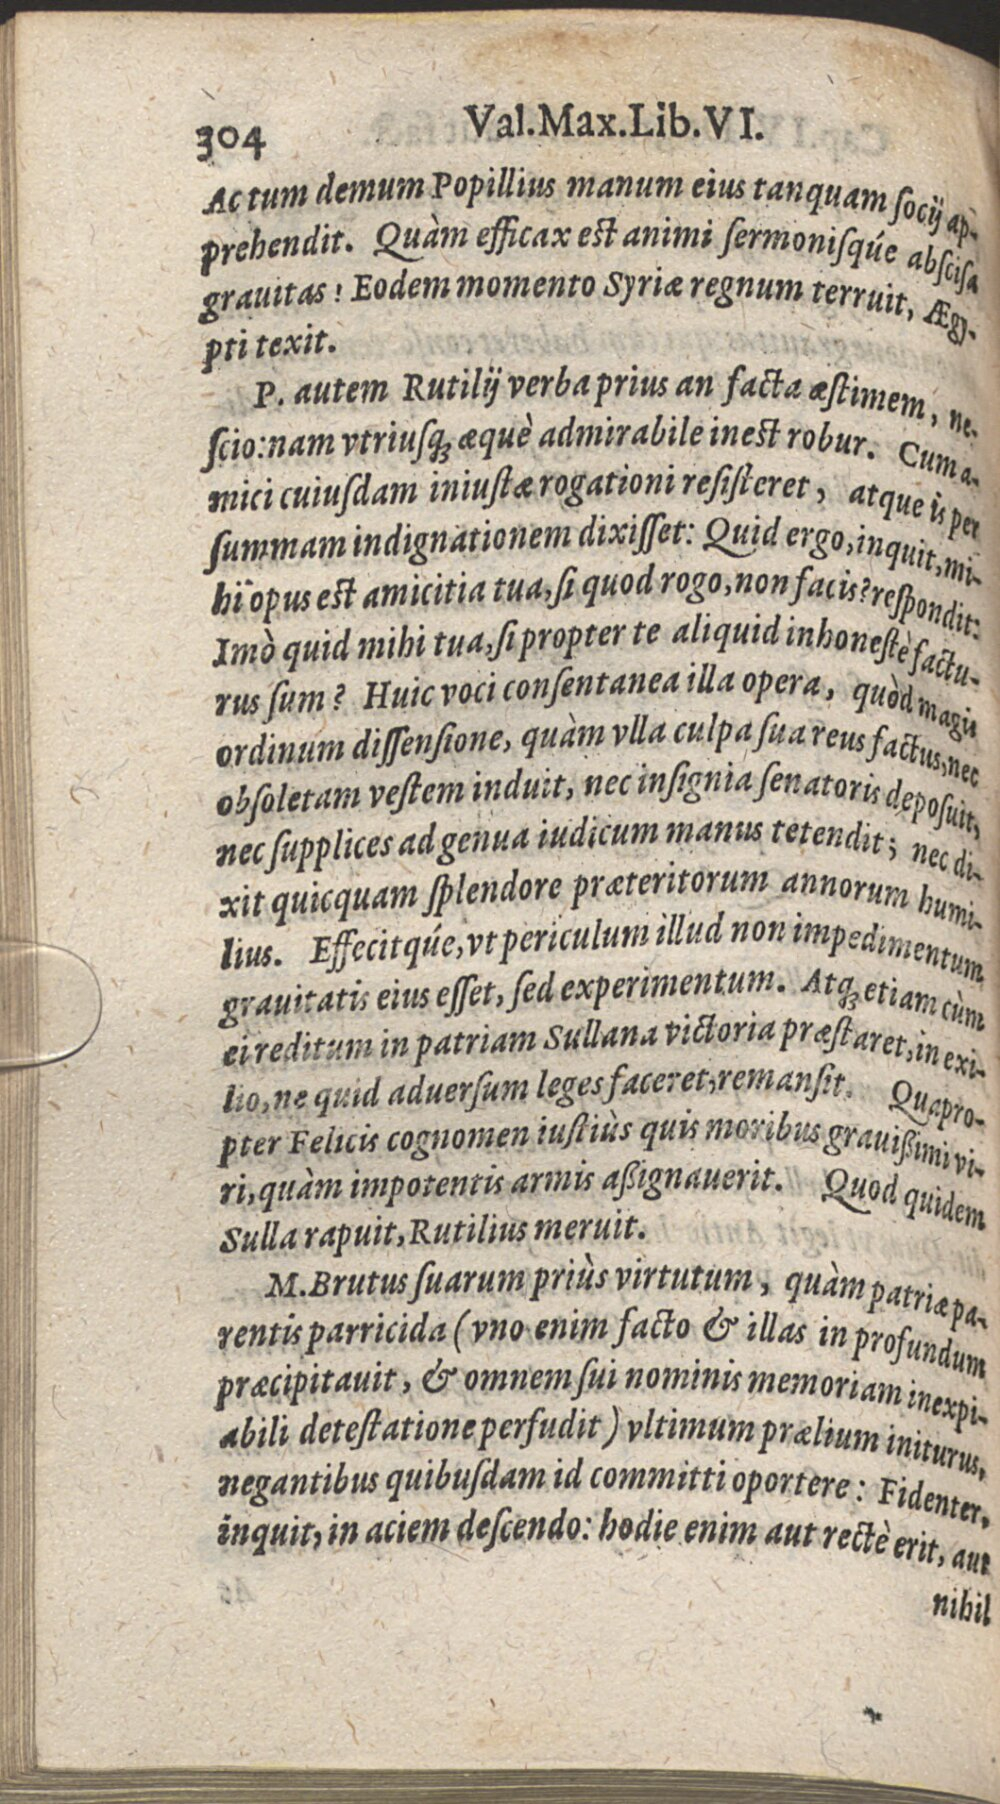 304
Val.Max.Lib.VI.
Ac tum demum Popillius manum eius tanquam ſocij ap-
prehendit. Quàm efficax est animi ſermoniſqúe abſciſa
grauitas! Eodem momento Syriæ regnum terruit, Ægy-
pti texit.
P. autem Rutilij verba prius an facta æſtimem, ne-
ſcio: nam vtriuſqꝫ æquè admirabile inest robur. Cum a-
mici cuiuſdam iniuſtæ rogationi reſiſteret, atque is per
ſummam indignationem dixiſſet: Quid ergo, inquit, mi-
hi opus est amicitia tua, ſi quod rogo, non facis? reſpondit:
Imò quid mihi tua, ſi propter te aliquid inhoneſtè factu-
rus ſum? Huic voci conſentanea illa opera, quòd magis
ordinum diſſenſione, quàm vlla culpa ſua reus factus, nec
obſoletam veſtem induit, nec inſignia ſenatoris depoſuit,
nec ſupplices ad genua iudicum manus tetendit; nec di-
xit quicquam ſplendore præteritorum annorum humi-
lius. Effecitqúe, vt periculum illud non impedimentum
grauitatis eius eſſet, ſed experimentum. Atqꝫ etiam cùm
ei reditum in patriam Sullana victoria præſtaret, in exi-
lio, ne quid aduerſum leges faceret, remanſit. Quapro-
pter Felicis cognomen iuſtiùs quis moribus grauißimi vi-
ri, quàm impotentis armis aßignauerit. Quod quidem
Sulla rapuit, Rutilius meruit.
M. Brutus ſuarum priùs virtutum, quàm patriæ pa-
rentis parricida (vno enim facto & illas in profundum
præcipitauit, & omnem ſui nominis memoriam inexpi-
abili deteſtatione perfudit) vltimum prælium initurus,
negantibus quibuſdam id committi oportere: Fidenter,
inquit, in aciem deſcendo: hodie enim aut rectè erit, aut
nihil